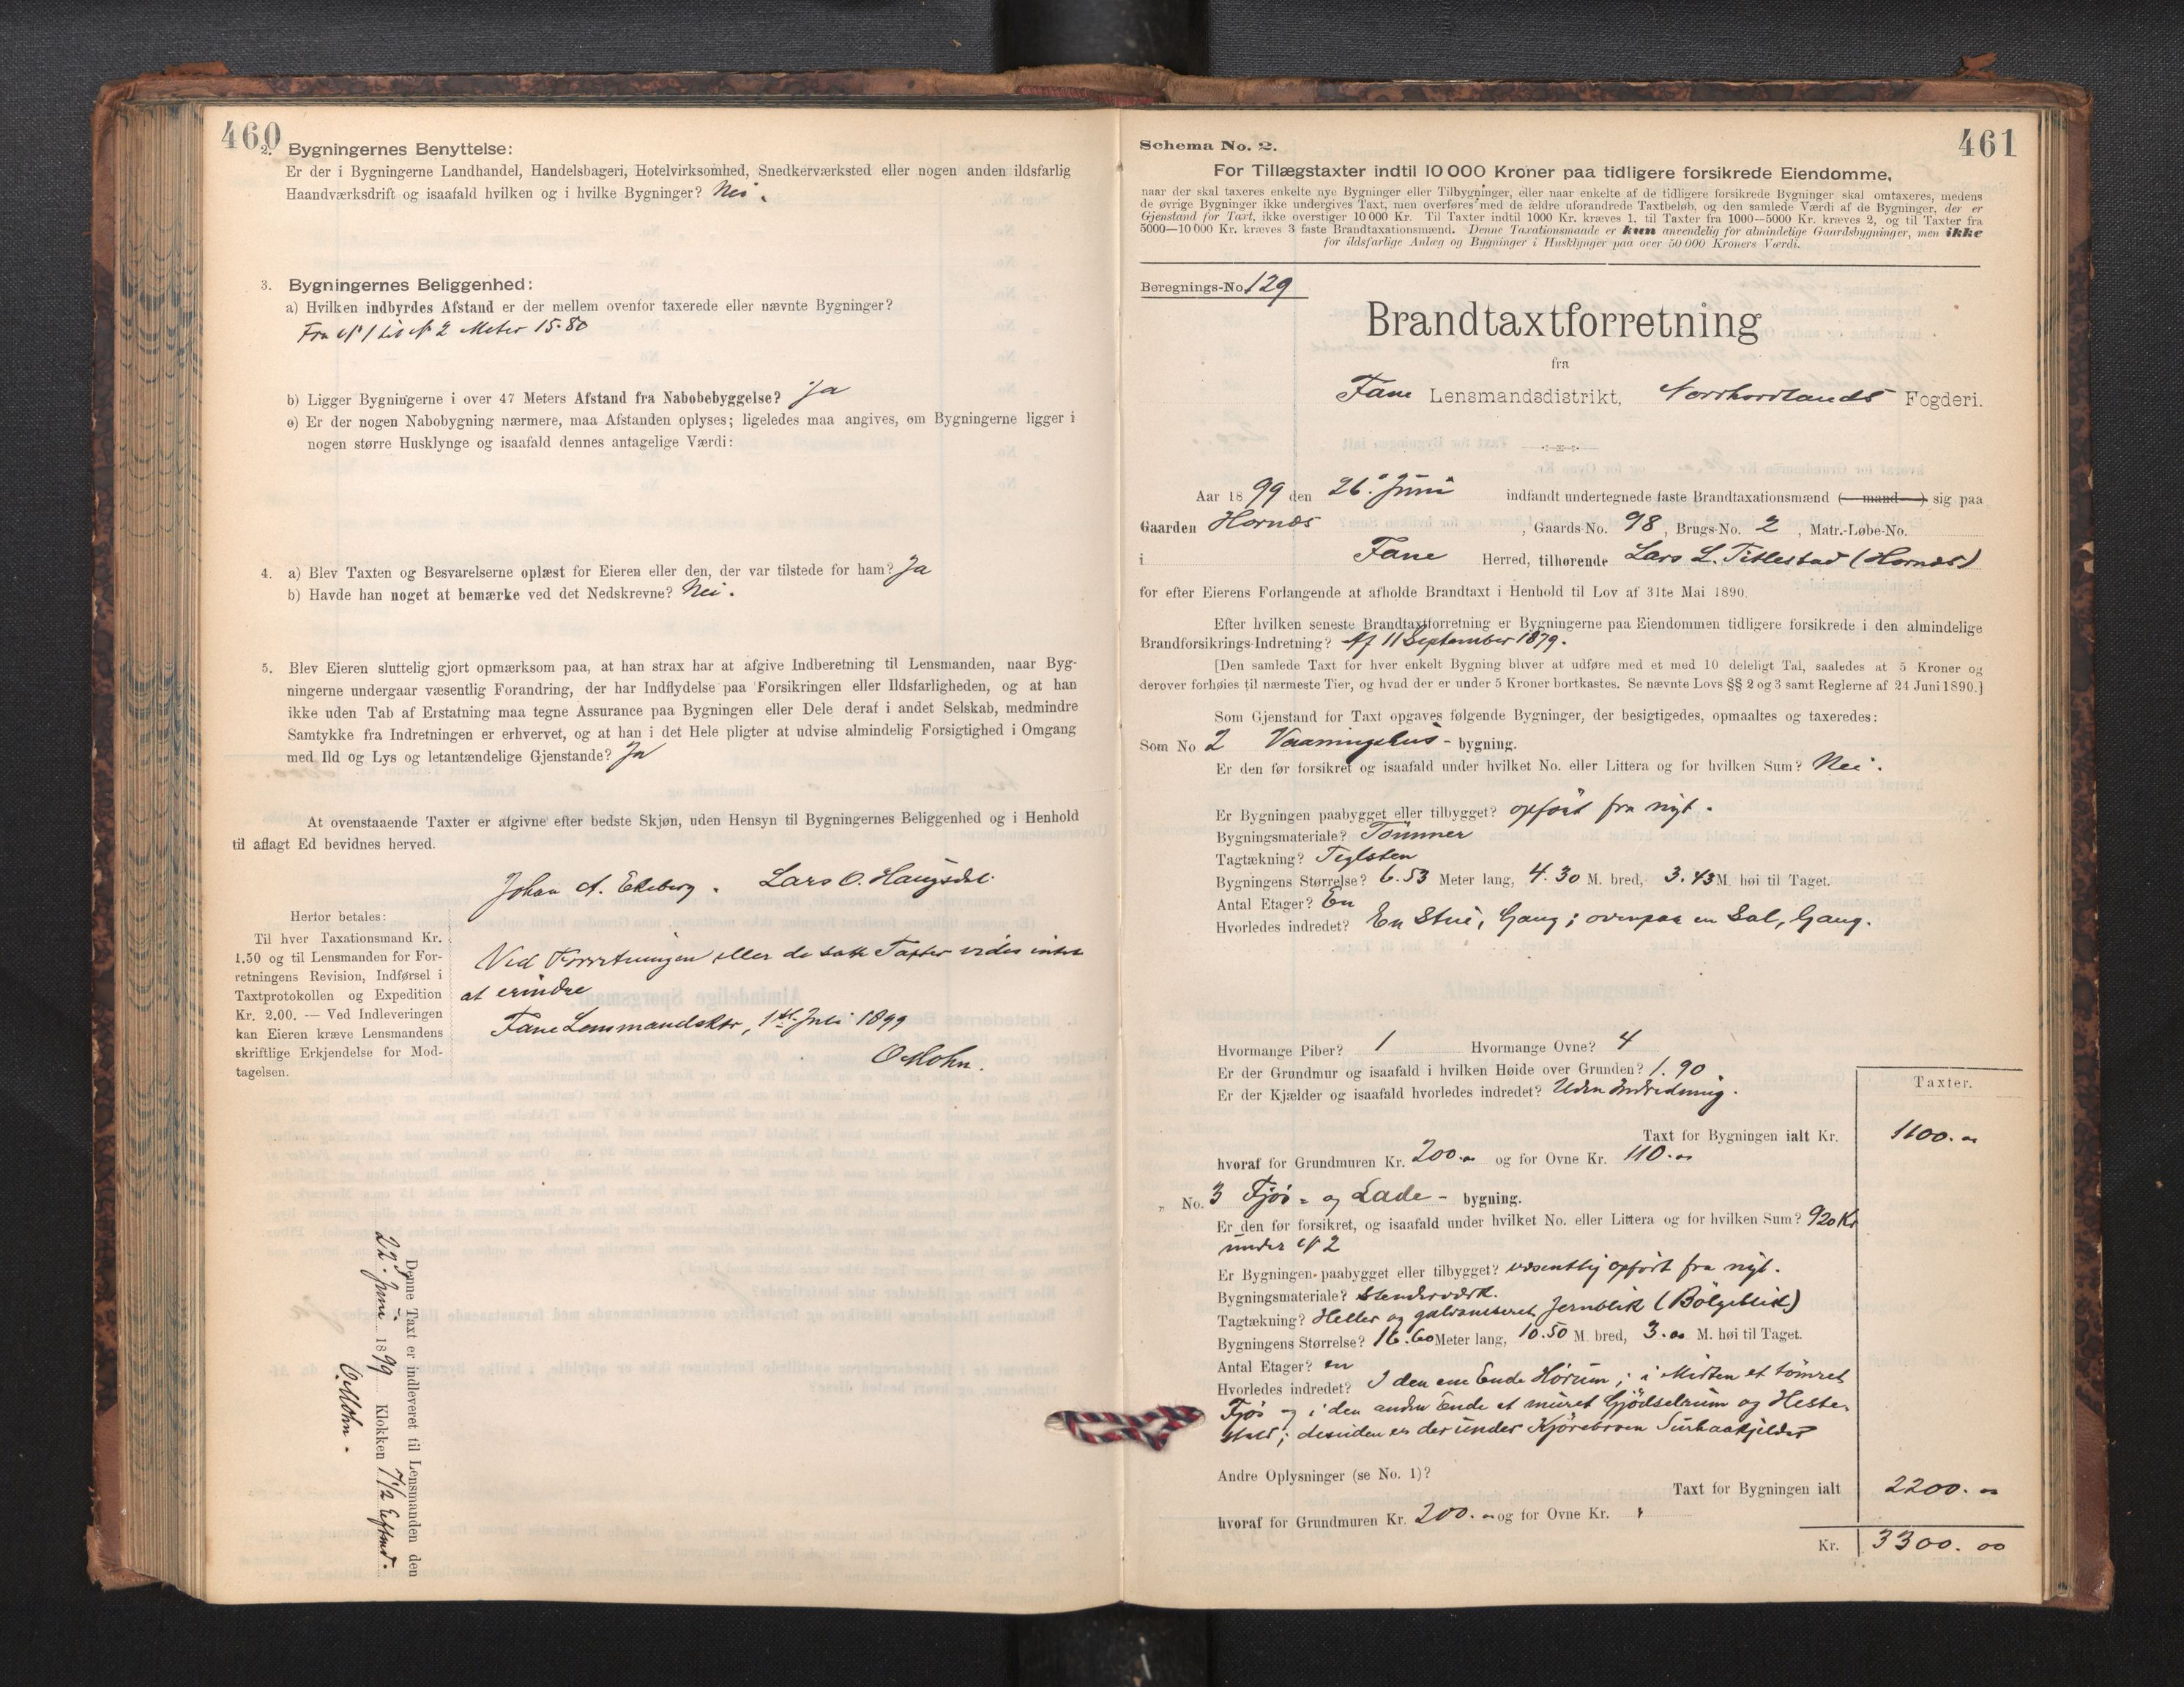 460
2. Bygningernes Benyttelse:
Er der i Bygningerne Landhandel, Handelsbageri, Hotelvirksomhed, Snedkerværksted eller nogen anden ildsfarlig
Haandværksdrift og isaafald hvilken og i hvilke Bygninger? Nei.
3. Bygningernes Beliggenhed:
a) Hvilken indbyrdes Afstand er der mellem ovenfor taxerede eller nævnte Bygninger?
Fra No 1 til No 2 Meter 15.80
b) Ligger Bygningerne i over 47 Meters Afstand fra Nabobebyggelse? Ja
c) Er der nogen Nabobygning nærmere, maa Afstanden oplyses; ligeledes maa angives, om Bygningerne ligger i
nogen større Husklynge og isaafald dennes antagelige Værdi:
4. a) Blev Taxten og Besvarelserne oplæst for Eieren eller den, der var tilstede for ham? Ja
b) Havde han noget at bemærke ved det Nedskrevne? Nei.
5. Blev Eieren sluttelig gjort opmærksom paa, at han strax har at afgive Indberetning til Lensmanden, naar Byg-
ningerne undergaar væsentlig Forandring, der har Indflydelse paa Forsikringen eller Ildsfarligheden, og at han
ikke uden Tab af Erstatning maa tegne Assurance paa Bygningen eller Dele deraf i andet Selskab, medmindre
Samtykke fra Indretningen er erhvervet, og at han i det Hele pligter at udvise almindelig Forsigtighed i Omgang
med Ild og Lys og letantændelige Gjenstande? Ja
At ovenstaaende Taxter er afgivne efter bedste Skjøn, uden Hensyn til Bygningernes Beliggenhed og i Henhold
til aflagt Ed bevidnes herved.
Johan A. Ekeberg. Lars O. Haugsdal.
Herfor betales:
Til hver Taxationsmand Kr.
1.50 og til Lensmanden for For-
retningens Revision, Indførsel i
Taxtprotokollen og Expedition
Kr. 2.00. — Ved Indleveringen
kan Eieren kræve Lensmandens
skriftlige Erkjendelse for Mod-
tagelsen.
Ved Forretningen eller de satte Taxter vides intet
at erindre
Fane Lensmandsktr, 1ste Juli 1899
O Mohn.
Denne Taxt er indleveret til Lensmanden den
22. Juni 1899 Klokken 7 1/2 Eftmd.
O. Mohn.
461
Schema No. 2.
For Tillægstaxter indtil 10 000 Kroner paa tidligere forsikrede Eiendomme,
naar der skal taxeres enkelte nye Bygninger eller Tilbygninger, eller naar enkelte af de tidligere forsikrede Bygninger skal omtaxeres, medens
de øvrige Bygninger ikke undergives Taxt, men overføres med de ældre uforandrede Taxtbeløb, og den samlede Værdi af de Bygninger, der er
Gjenstand for Taxt, ikke overstiger 10 000 Kr. Til Taxter indtil 1000 Kr. kræves 1, til Taxter fra 1000—5000 Kr. kræves 2, og til Taxter fra
5000—10 000 Kr. kræves 3 faste Brandtaxationsmænd. Denne Taxationsmaade er kun anvendelig for almindelige Gaardsbygninger, men ikke
for ildsfarlige Anlæg og Bygninger i Husklynger paa over 50 000 Kroners Værdi.
Beregnings-No. 129
Brandtaxtforretning
fra
Fane Lensmandsdistrikt, Nordhordlands Fogderi.
Aar 1899 den 26. Juni indfandt undertegnede faste Brandtaxationsmænd (—mand—) sig paa
Gaarden Hornæs, Gaards-No. 98, Brugs-No. 2, Matr.-Løbe-No.
i Fane Herred, tilhørende Lars L. Titlestad (Hornæs)
for efter Eierens Forlangende at afholde Brandtaxt i Henhold til Lov af 31te Mai 1890.
Efter hvilken seneste Brandtaxtforretning er Bygningerne paa Eiendommen tidligere forsikrede i den almindelige
Brandforsikrings-Indretning? Af 11 September 1879.
[Den samlede Taxt for hver enkelt Bygning bliver at udføre med et med 10 deleligt Tal, saaledes at 5 Kroner og
derover forhøies til nærmeste Tier, og hvad der er under 5 Kroner bortkastes. Se nævnte Lovs §§ 2 og 3 samt Reglerne af 24 Juni 1890.]
Som Gjenstand for Taxt opgaves følgende Bygninger, der besigtigedes, opmaaltes og taxeredes:
Som No 2 Vaaningshus - bygning.
Er den før forsikret og isaafald under hvilket No. eller Littera og for hvilken Sum? Nei.
Er Bygningen paabygget eller tilbygget? opført fra nyt.
Bygningsmateriale? Tømmer
Tagtækning? Teglsten
Bygningens Størrelse? 6.53 Meter lang, 4.30 M. bred, 3.43 M. høi til Taget.
Antal Etager? En
Hvorledes indredet? En Stue, Gang; ovenpaa en Sal, Gang.
Hvormange Piber? 1 Hvormange Ovne? 4
Er der Grundmur og isaafald i hvilken Høide over Grunden? 1.90.
Er der Kjælder og isaafald hvorledes indredet? Uden Indredning.
Taxter.
Taxt for Bygningen ialt Kr. 1100.00
hvoraf for Grundmuren Kr. 200.00 og for Ovne Kr. 110.00
„ No. 3 Fjøs - og Lade - bygning.
Er den før forsikret, og isaafald under hvilket No. eller Littera og for hvilken Sum? 920 Kr
under No 2
Er Bygningen paabygget eller tilbygget? væsentlig opført fra nyt.
Bygningsmateriale? Stenderværk.
Tagtækning? Heller og galvaniseret Jernblik (Bølgeblik)
Bygningens Størrelse? 16.60 Meter lang, 10.50 M. bred, 3.00 M. høi til Taget.
Antal Etager? en
Hvorledes indredet? I den ene Ende Hørum; i Midten et tømret
Fjøs og i den anden Ende et muret Gjødselrum og Heste-
stald; desuden er der under Kjørebroen
Andre Oplysninger (se No. 1)?
Taxt for Bygningen ialt 2200.00
hvoraf for Grundmuren Kr. 200.00 og for Ovne Kr.
Kr. 3300.00